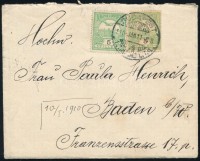 Hochw.
Frau Paula Heinrich,
10/1. 1910
Baden b/W.
Franzensstrasse 17. p.